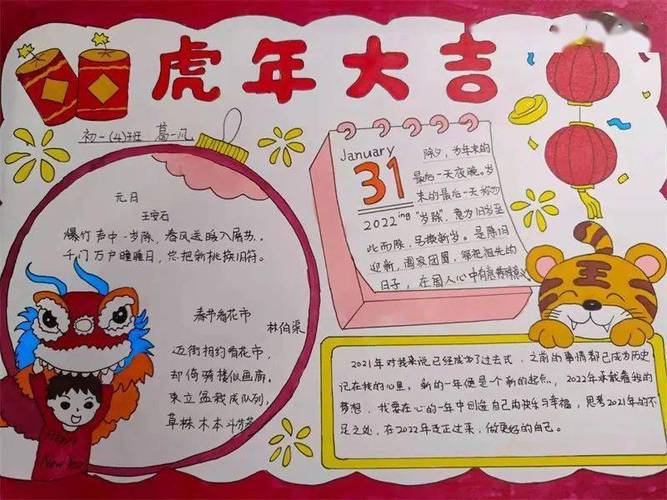 虎年大吉
初一(4)班 葛一凡
元日
王安石
爆竹声中一岁除,春风送暖入屠苏。
千门万户曈曈日,总把新桃换旧符。
春节看花市
林伯渠
迈街相约看花市,
却倚骑楼似画廊。
束立盆栽成队列,
草株木本斗芬
January
31
2022ing
除夕,为年末的
最后一天夜晚。岁
末的最后一天称为
"岁除",意为旧岁至
此而除,另换新岁。是除旧
迎新,阖家团圆,祭祀祖先的
日子,在国人心中有意义
2021年对我来说已经成为了过去式,之前的事情都已成为历史
记在我的心里,新的一年便是个新的起点,2022年承载着我的
梦想,我要在心的一年中创造自己的快乐与幸福,思考2021年的不
足之处,在2022年改正过来,做更好的自己。
王
Happy
New Year